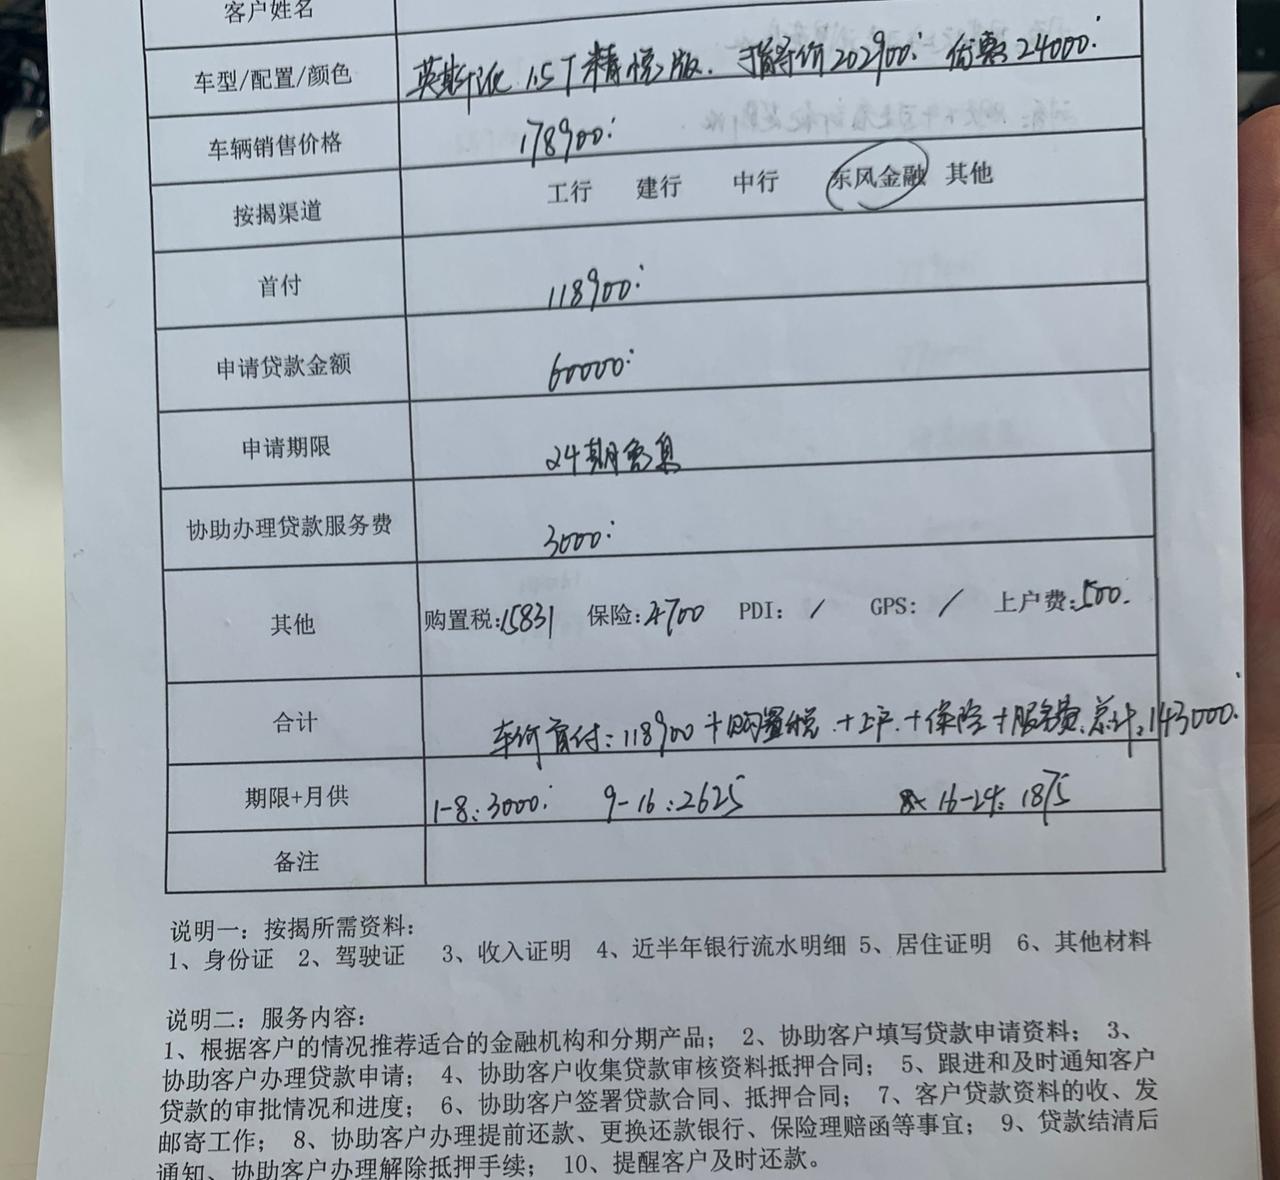 客户姓名
车型/配置/颜色 英斯派 1.5T精悦版. 指导价202900. 优惠24000.
车辆销售价格 178900.
按揭渠道 工行 建行 中行 东风金融 其他
首付 118900.
申请贷款金额 60000.
申请期限 24期免息
协助办理贷款服务费 3000.
其他 购置税:15831 保险:4700 PDI: / GPS: / 上户费:500.
合计 车价首付:118900+购置税+上户+保险+服务费.总计:143000.
期限+月供 1-8:3000. 9-16:2625 16-24:1875
备注
说明一：按揭所需资料：
1、身份证 2、驾驶证 3、收入证明 4、近半年银行流水明细 5、居住证明 6、其他材料
说明二：服务内容：
1、根据客户的情况推荐适合的金融机构和分期产品； 2、协助客户填写贷款申请资料； 3、
协助客户办理贷款申请； 4、协助客户收集贷款审核资料抵押合同； 5、跟进和及时通知客户
贷款的审批情况和进度； 6、协助客户签署贷款合同、抵押合同； 7、客户贷款资料的收、发
邮寄工作； 8、协助客户办理提前还款、更换还款银行、保险理赔函等事宜； 9、贷款结清后
通知、协助客户办理解除抵押手续； 10、提醒客户及时还款。